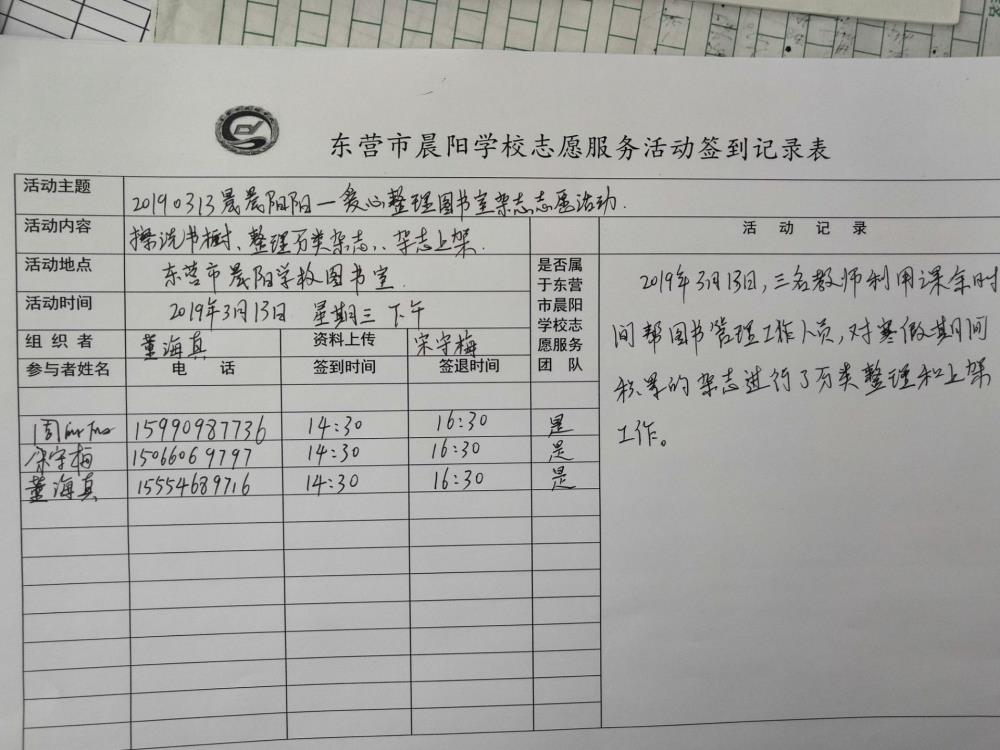 东营市晨阳学校志愿服务活动签到记录表
活动主题 20190313晨晨阳阳—爱心整理图书室杂志志愿活动.
活动内容 擦洗书橱、整理分类杂志、杂志上架.
活动地点 东营市晨阳学校图书室
活动时间 2019年3月13日 星期三 下午
组织者 董海真 资料上传 宋守梅
参与者姓名 电话 签到时间 签退时间
是否属
于东营
市晨阳
学校志
愿服务
团队
周 15990987736 14:30 16:30 是
宋守梅 15066069797 14:30 16:30 是
董海真 15554689716 14:30 16:30 是
活动记录
2019年3月13日,三名教师利用课余时
间帮图书管理工作人员,对寒假期间
积累的杂志进行了分类整理和上架
工作。